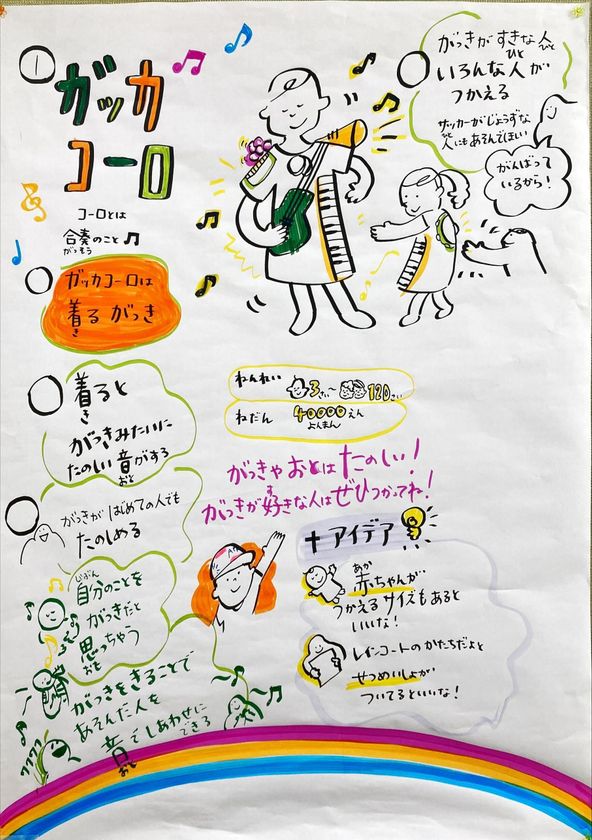 ①
ガッカ
コーロ
コーロとは
合奏のこと
がっそう
ガッカコーロは
着る がっき
き
着ると
き
がっきみたいに
たのしい音がする
おと
がっきが はじめての人でも
たのしめる
じぶん
自分のことを
がっきだと
思っちゃう
おも
がっきをきることで
あそんだ人を
音でしあわせに
できる
おと
がっきが すきな人
ひと
いろんな人が
ひと
つかえる
サッカーがじょうずな
人にもあそんでほしい
ひと
がんばって
いるから!
ねんれい 3さい~120さい
ねだん 40000えん
よんまん
がっきや おとは たのしい!
がっきが好きな人はぜひつかってね!
す
+アイデア
あか
赤ちゃんが
つかえるサイズもあると
いいな!
レインコートのかたちだよと
せつめいしょが
ついてるといいな!